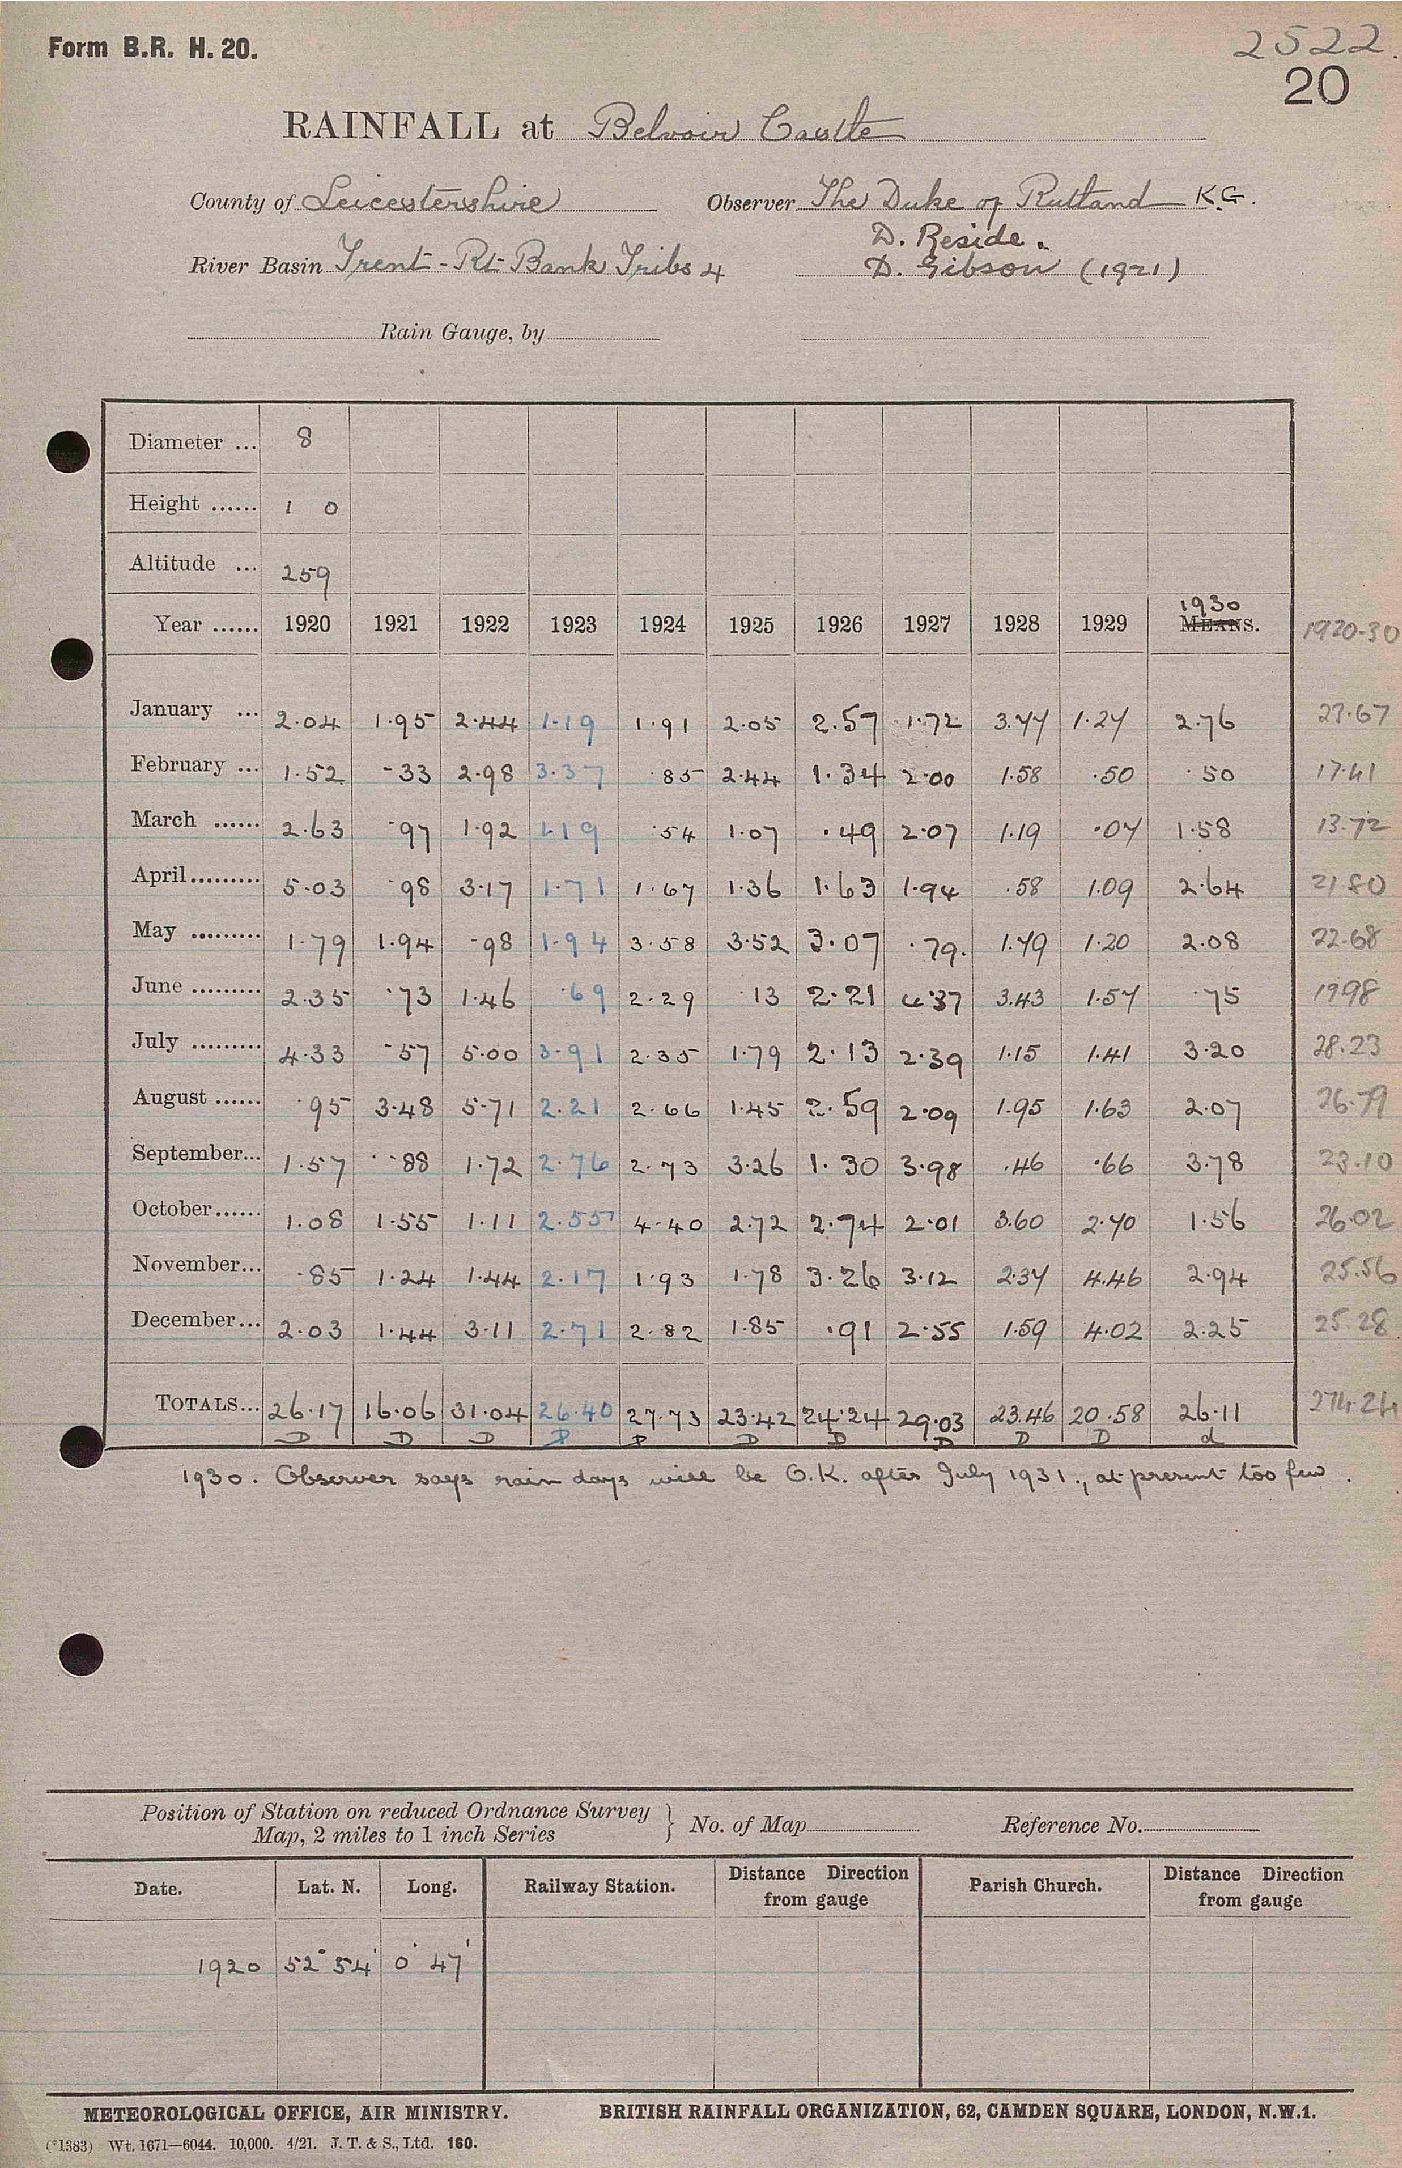 Form B.R. H. 20.
2522.
20
RAINFALL at Belvoir Castle
County of Leicestershire Observer The Duke of Rutland K.G.
D. Reside.
River Basin Trent - Rt Bank Tribs 4 D. Gibson (1921)
Rain Gauge, by
Diameter ... 8
Height ...... 1 0
Altitude ... 259
1930
Year ...... 1920 1921 1922 1923 1924 1925 1926 1927 1928 1929 MEANS. 1920-30
January ... 2.04 1.95 2.44 1.19 1.91 2.05 2.57 1.72 3.77 1.27 2.76 23.67
February ... 1.52 .33 2.98 3.37 .85 2.44 1.34 2.00 1.58 .50 .50 17.41
March ...... 2.63 .97 1.92 1.19 .54 1.07 .49 2.07 1.19 .07 1.58 13.72
April......... 5.03 .98 3.17 1.71 1.67 1.36 1.63 1.94 .58 1.09 2.64 21.80
May ......... 1.79 1.94 .98 1.94 3.58 3.52 3.07 .79. 1.79 1.20 2.08 22.68
June ......... 2.35 .73 1.46 .69 2.29 .13 2.21 4.37 3.43 1.57 .75 19.98
July ......... 4.33 .57 5.00 3.91 2.35 1.79 2.13 2.39 1.15 1.41 3.20 28.23
August ...... .95 3.48 5.71 2.21 2.66 1.45 2.59 2.09 1.95 1.63 2.07 26.79
September... 1.57 .88 1.72 2.76 2.73 3.26 1.30 3.98 .46 .66 3.78 23.10
October...... 1.08 1.55 1.11 2.55 4.40 2.72 2.74 2.01 3.60 2.70 1.56 26.02
November... .85 1.24 1.44 2.17 1.93 1.78 3.26 3.12 2.37 4.46 2.94 25.56
December... 2.03 1.44 3.11 2.71 2.82 1.85 .91 2.55 1.59 4.02 2.25 25.28
TOTALS... 26.17 16.06 31.04 26.40 27.73 23.42 24.24 29.03 23.46 20.58 26.11 274.24
D D D D D D D D D D d
1930. Observer says rain days will be O.K. after July 1931., at present too few.
Position of Station on reduced Ordnance Survey
Map, 2 miles to 1 inch Series } No. of Map Reference No.
Date. Lat. N. Long. Railway Station. Distance from gauge Direction Parish Church. Distance from gauge Direction
1920 52° 54' 0° 47'
METEOROLOGICAL OFFICE, AIR MINISTRY. BRITISH RAINFALL ORGANIZATION, 62, CAMDEN SQUARE, LONDON, N.W.1.
(*1383) Wt. 1671—6044. 10,000. 4/21. J. T. & S., Ltd. 160.